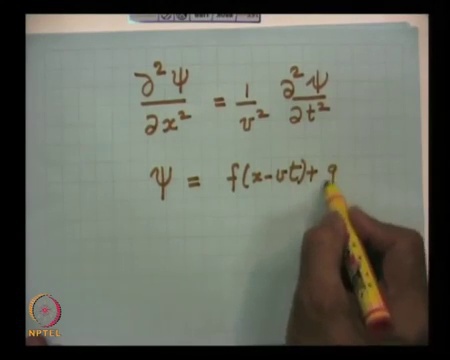 ∂²Ψ/∂x² = 1/v² ∂²Ψ/∂t²
Ψ = f(x-vt)+ g
NPTEL